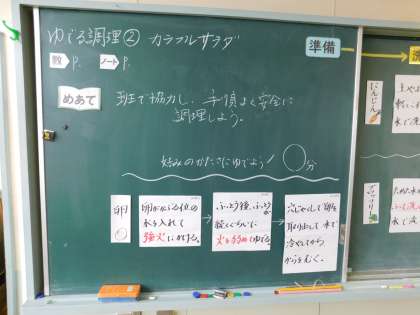 ゆでる調理② カラフルサラダ
教 P. ノート P.
準備
めあて
班で協力し、手順よく安全に
調理しよう。
好みのかたさにゆでよう! ○分
卵
卵がかくれる位の
水を入れて
強火にかける。
ふっとう後、ふっとうが
続くぐらいに
火を弱めゆでる。
穴じゃくしで卵を
取り出して水で
冷やしてから
からをむく。
にんじん